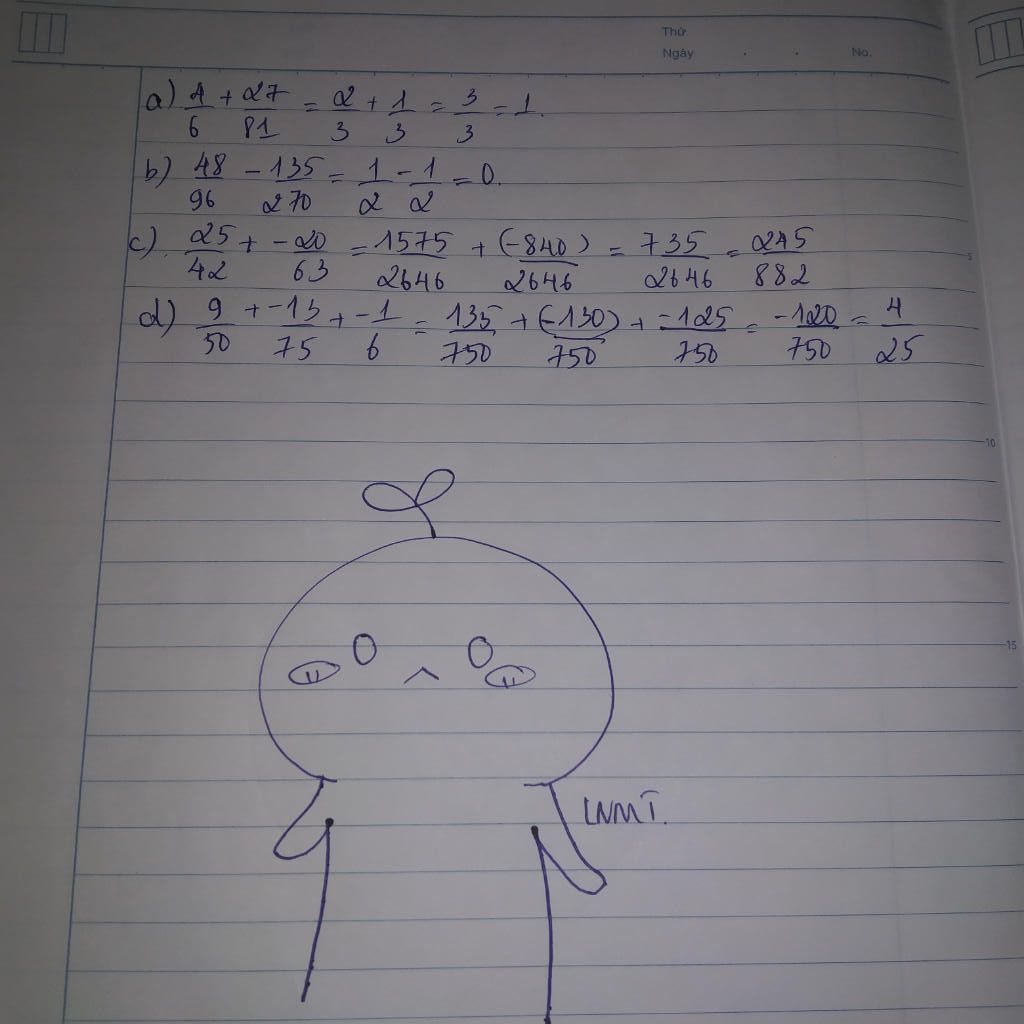 Thứ
Ngày . . No.
a) 4/6 + 27/81 = 2/3 + 1/3 = 3/3 = 1.
b) 48/96 - 135/270 = 1/2 - 1/2 = 0.
c) 25/42 + -20/63 = 1575/2646 + (-840)/2646 = 735/2646 = 245/882
5
d) 9/50 + -13/75 + -1/6 = 135/750 + (-130)/750 + -125/750 = -120/750 = 4/25
10
15
LNMT.